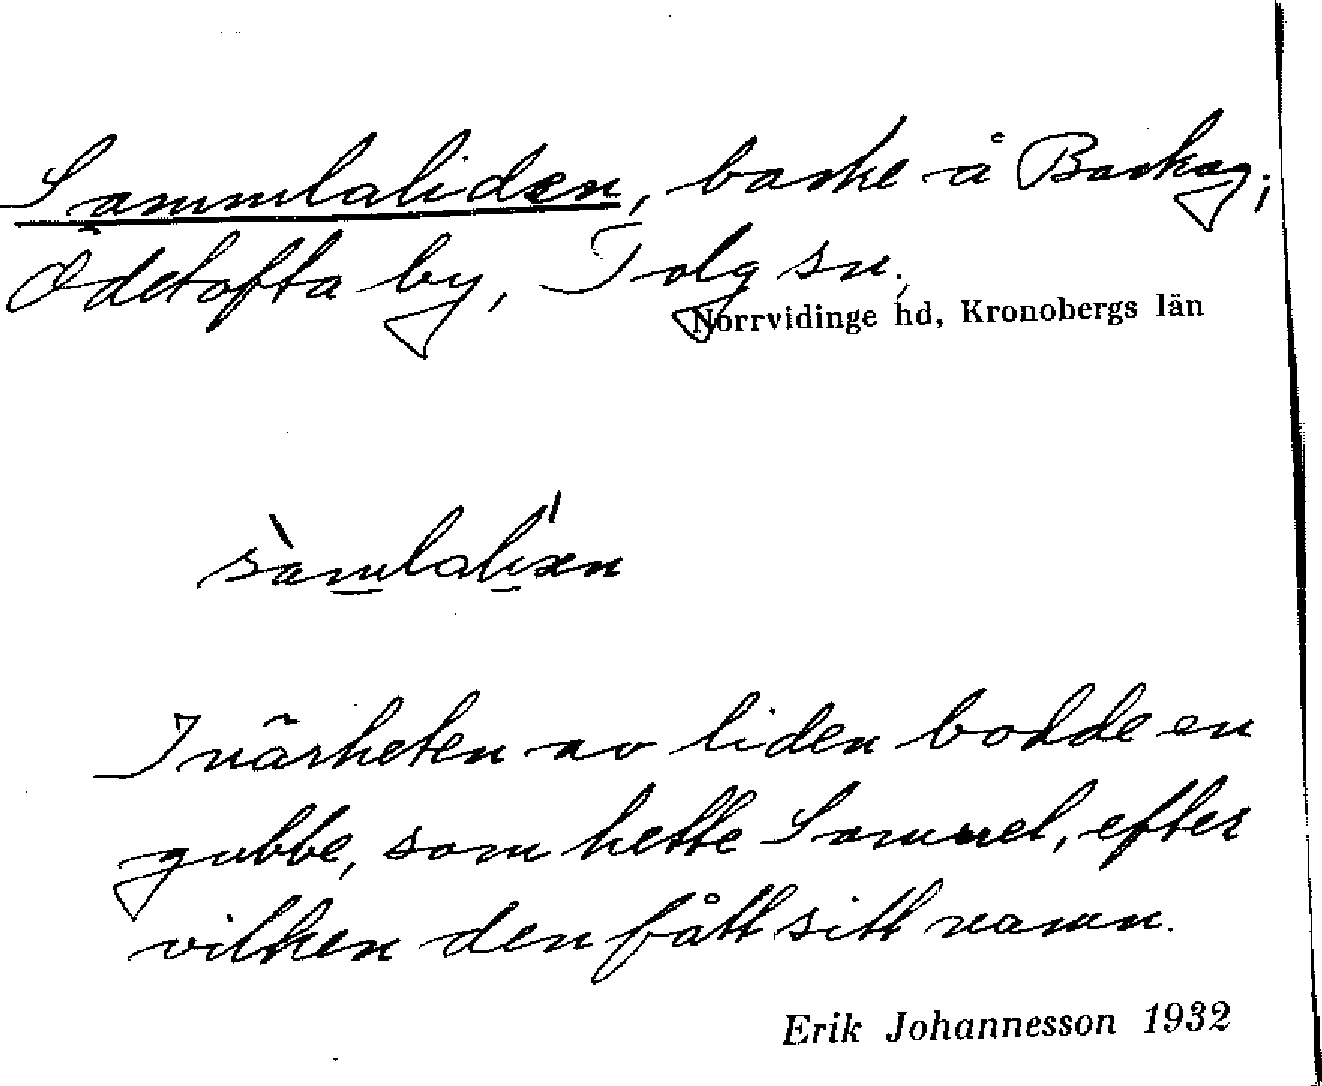 Sammlaliden, backe å Backag;
Ödetofta by, Tolg sn,
Norrvidinge hd, Kronobergs län
sàmlalìxn
I närheten av liden bodde en
gubbe, som hette Samuel, efter
vilken den fått sitt namn.
Erik Johannesson 1932